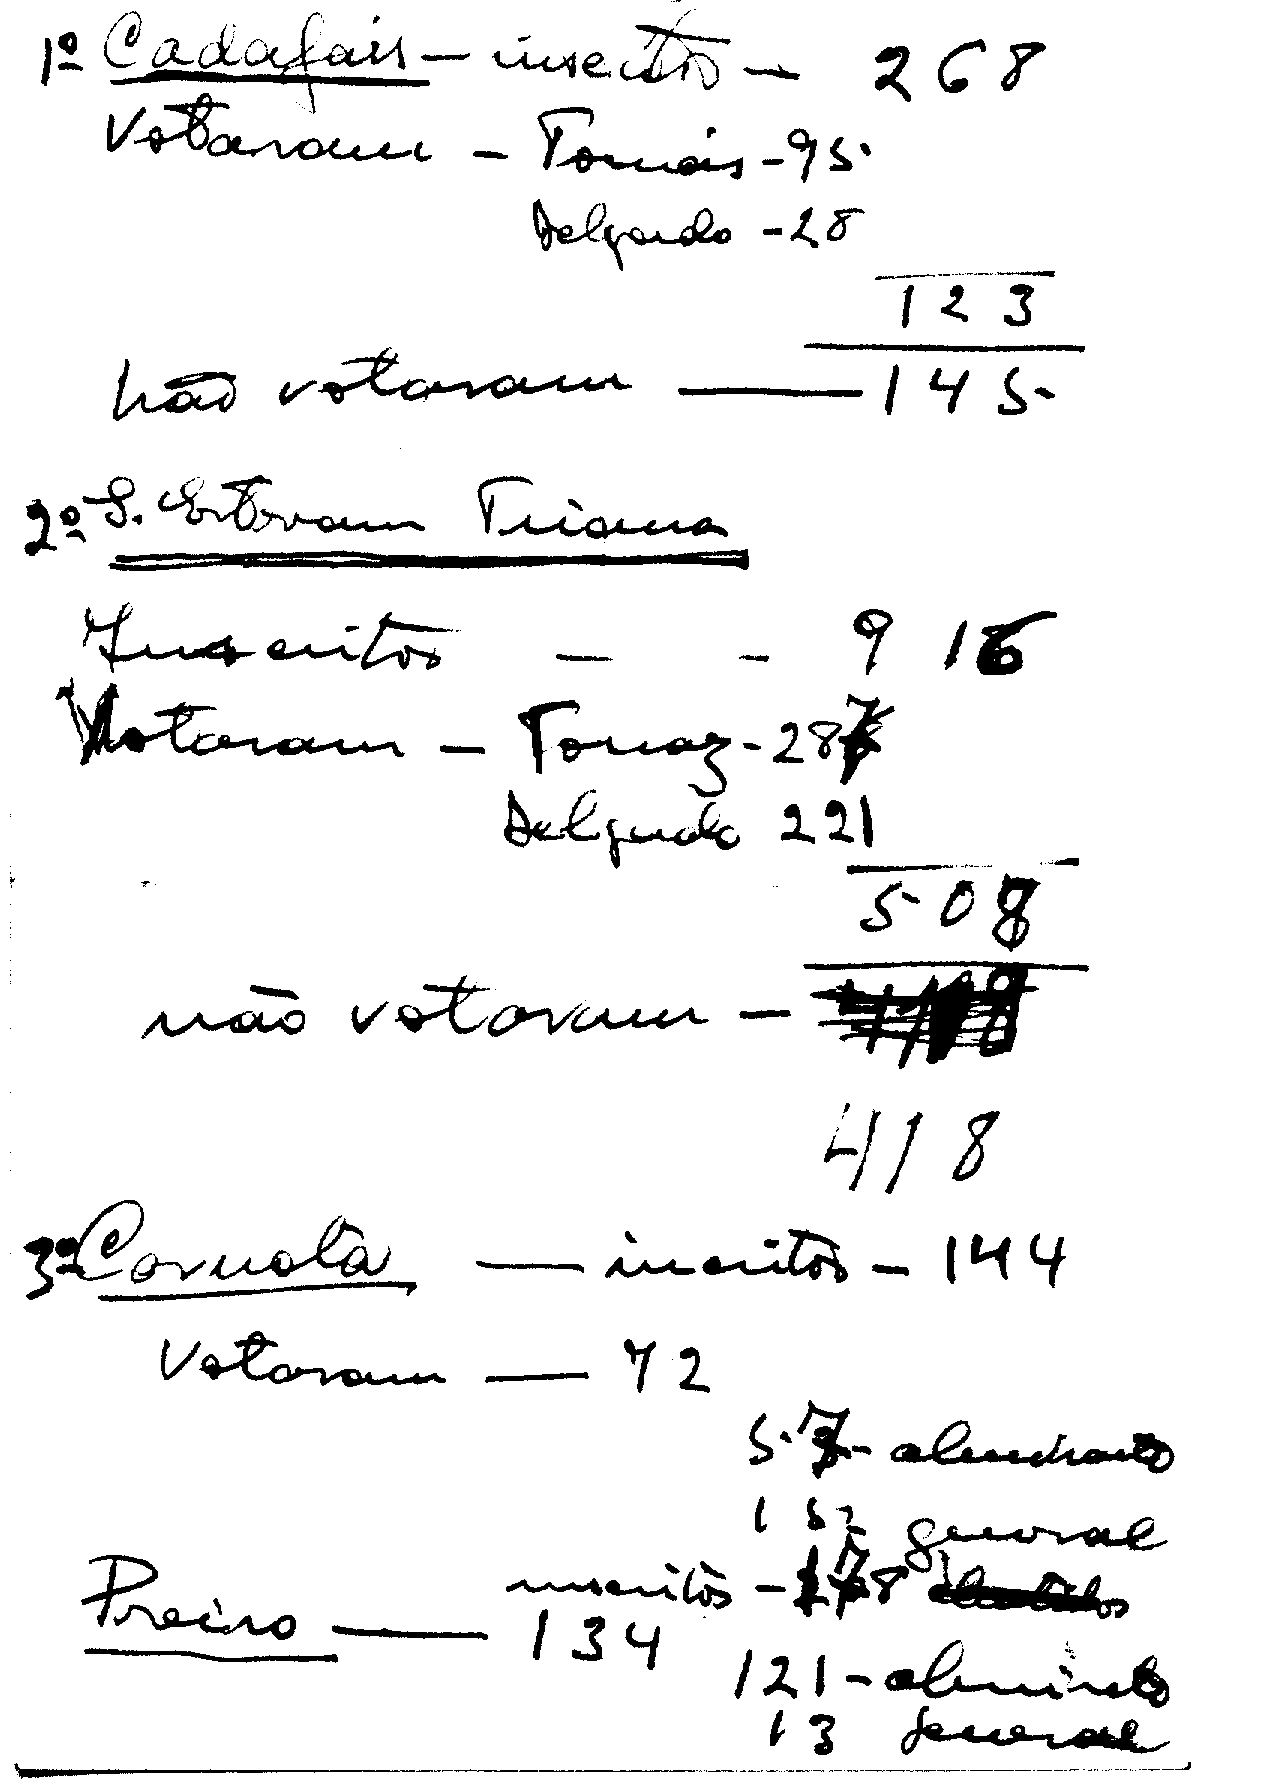 1º Cadafais - inscritos - 268
Votaram - Tomás - 95
Delgado - 28
123
não votaram - 145
2º S. Estevam Triana
Inscritos - - 916
Votaram - Tomaz - 287
Delgado 221
508
não votaram -
418
3º Carnota - inscritos - 144
Votaram - 72
57 - almirante
15 - general
Preiro - inscritos - 178
134
121 - almirante
13 general